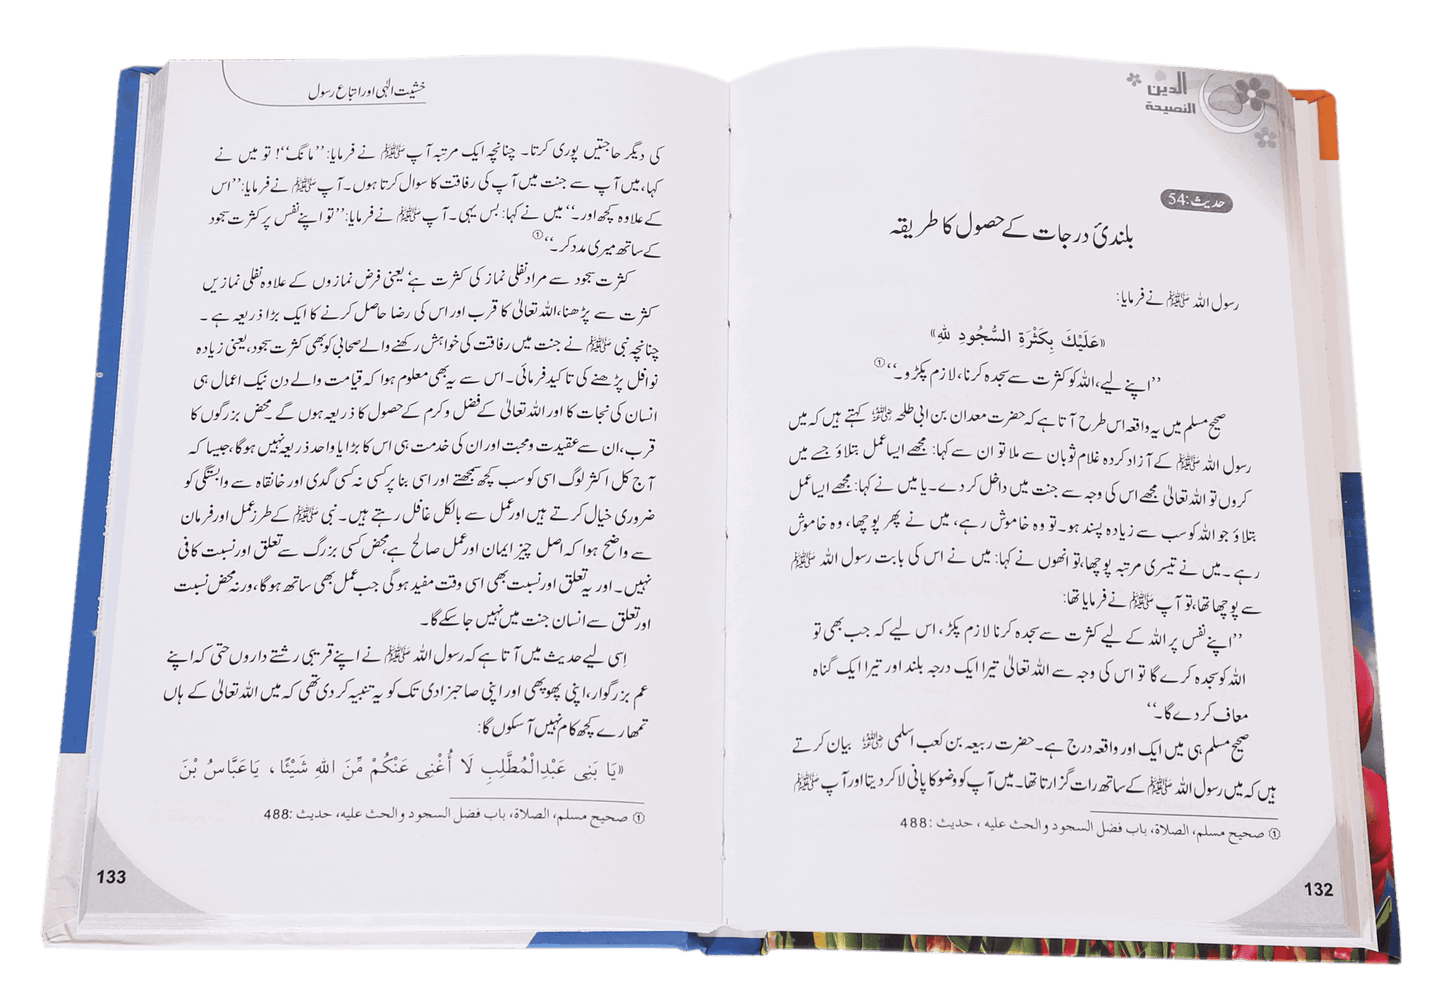 الدين
النصيحة
حدیث :54
بلندیٔ درجات کے حصول کا طریقہ
رسول اللہ ﷺ نے فرمایا:
«عَلَيْكَ بِكَثْرَةِ السُّجُودِ لِلّٰهِ»
’’اپنے لیے، اللہ کو کثرت سے سجدہ کرنا، لازم پکڑو۔‘‘①
صحیح مسلم میں یہ واقعہ اس طرح آتا ہے کہ حضرت معدان بن ابی طلحہ ﷫ کہتے ہیں کہ میں
رسول اللہ ﷺ کے آزاد کردہ غلام ثوبان سے ملا تو ان سے کہا: مجھے ایسا عمل بتلاؤ جسے میں
کروں تو اللہ تعالیٰ مجھے اس کی وجہ سے جنت میں داخل کر دے۔ یا میں نے کہا: مجھے ایسا عمل
بتلاؤ جو اللہ کو سب سے زیادہ پسند ہو۔ تو وہ خاموش رہے، میں نے پھر پوچھا، وہ خاموش
رہے۔ میں نے تیسری مرتبہ پوچھا، تو انھوں نے کہا: میں نے اس کی بابت رسول اللہ ﷺ
سے پوچھا تھا، تو آپ ﷺ نے فرمایا تھا:
’’اپنے نفس پر اللہ کے لیے کثرت سے سجدہ کرنا لازم پکڑ، اس لیے کہ جب بھی تو
اللہ کو سجدہ کرے گا تو اس کی وجہ سے اللہ تعالیٰ تیرا ایک درجہ بلند اور تیرا ایک گناہ
معاف کر دے گا۔‘‘
صحیح مسلم ہی میں ایک اور واقعہ درج ہے۔ حضرت ربیعہ بن کعب اسلمی ﷜ بیان کرتے
ہیں کہ میں رسول اللہ ﷺ کے ساتھ رات گزارتا تھا۔ میں آپ کو وضو کا پانی لا کر دیتا اور آپ ﷺ
① صحيح مسلم، الصلاة، باب فضل السجود والحث عليه، حديث :488
132
خشیت الٰہی اور اتباع رسول
کی دیگر حاجتیں پوری کرتا۔ چنانچہ ایک مرتبہ آپ ﷺ نے فرمایا: ’’مانگ‘‘! تو میں نے
کہا، میں آپ سے جنت میں آپ کی رفاقت کا سوال کرتا ہوں۔ آپ ﷺ نے فرمایا: ’’اس
کے علاوہ کچھ اور۔‘‘ میں نے کہا: بس یہی۔ آپ ﷺ نے فرمایا: ’’تو اپنے نفس پر کثرت سجود
کے ساتھ میری مدد کر۔‘‘①
کثرت سجود سے مراد نفلی نماز کی کثرت ہے‘ یعنی فرض نمازوں کے علاوہ نفلی نمازیں
کثرت سے پڑھنا، اللہ تعالیٰ کا قرب اور اس کی رضا حاصل کرنے کا ایک بڑا ذریعہ ہے۔
چنانچہ نبی ﷺ نے جنت میں رفاقت کی خواہش رکھنے والے صحابی کو بھی کثرت سجود، یعنی زیادہ
نوافل پڑھنے کی تاکید فرمائی۔ اس سے یہ بھی معلوم ہوا کہ قیامت والے دن نیک اعمال ہی
انسان کی نجات کا اور اللہ تعالیٰ کے فضل و کرم کے حصول کا ذریعہ ہوں گے۔ محض بزرگوں کا
قرب، ان سے عقیدت و محبت اور ان کی خدمت ہی اس کا بڑا یا واحد ذریعہ نہیں ہوگا، جیسا کہ
آج کل اکثر لوگ اسی کو سب کچھ سمجھتے اور اسی بنا پر کسی نہ کسی گدی اور خانقاہ سے وابستگی کو
ضروری خیال کرتے ہیں اور عمل سے بالکل غافل رہتے ہیں۔ نبی ﷺ کے طرز عمل اور فرمان
سے واضح ہوا کہ اصل چیز ایمان اور عمل صالح ہے، محض کسی بزرگ سے تعلق اور نسبت کافی
نہیں۔ اور یہ تعلق اور نسبت بھی اسی وقت مفید ہوگی جب عمل بھی ساتھ ہوگا، ورنہ محض نسبت
اور تعلق سے انسان جنت میں نہیں جا سکے گا۔
اِسی لیے حدیث میں آتا ہے کہ رسول اللہ ﷺ نے اپنے قریبی رشتے داروں حتی کہ اپنے
عم بزرگوار، اپنی پھوپھی اور اپنی صاحبزادی تک کو یہ تنبیہ کر دی تھی کہ میں اللہ تعالیٰ کے ہاں
تمھارے کچھ کام نہیں آ سکوں گا:
«يَا بَنِي عَبْدِالْمُطَّلِبِ لَا أُغْنِي عَنْكُمْ مِّنَ اللّٰهِ شَيْئًا، يَاعَبَّاسُ بْنَ
① صحيح مسلم، الصلاة، باب فضل السجود والحث عليه، حديث :488
133